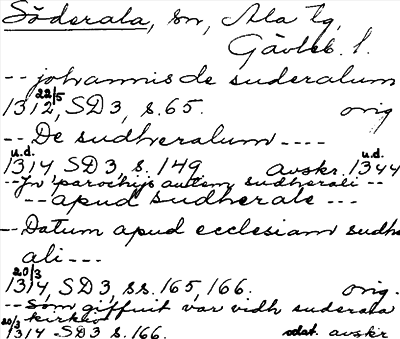 Söderala, sn, Ala tg,
Gävleb. l.
-- johannis de suderalum
1312 22/5, SD 3, s. 65. orig
-- De sudheralum ----
u.d. u.d.
1314, SD 3, s. 149. avskr. 1344
-- Jn parochijs autem sudherali --
-- apud sudherale ---
-- Datum apud ecclesiam sudher
ali ---
20/3
1314, SD 3, ss. 165, 166. orig.
-- Som giffuit var vidh suderala
kirkio
20/3 1314 SD 3 s. 166. odat. avskr